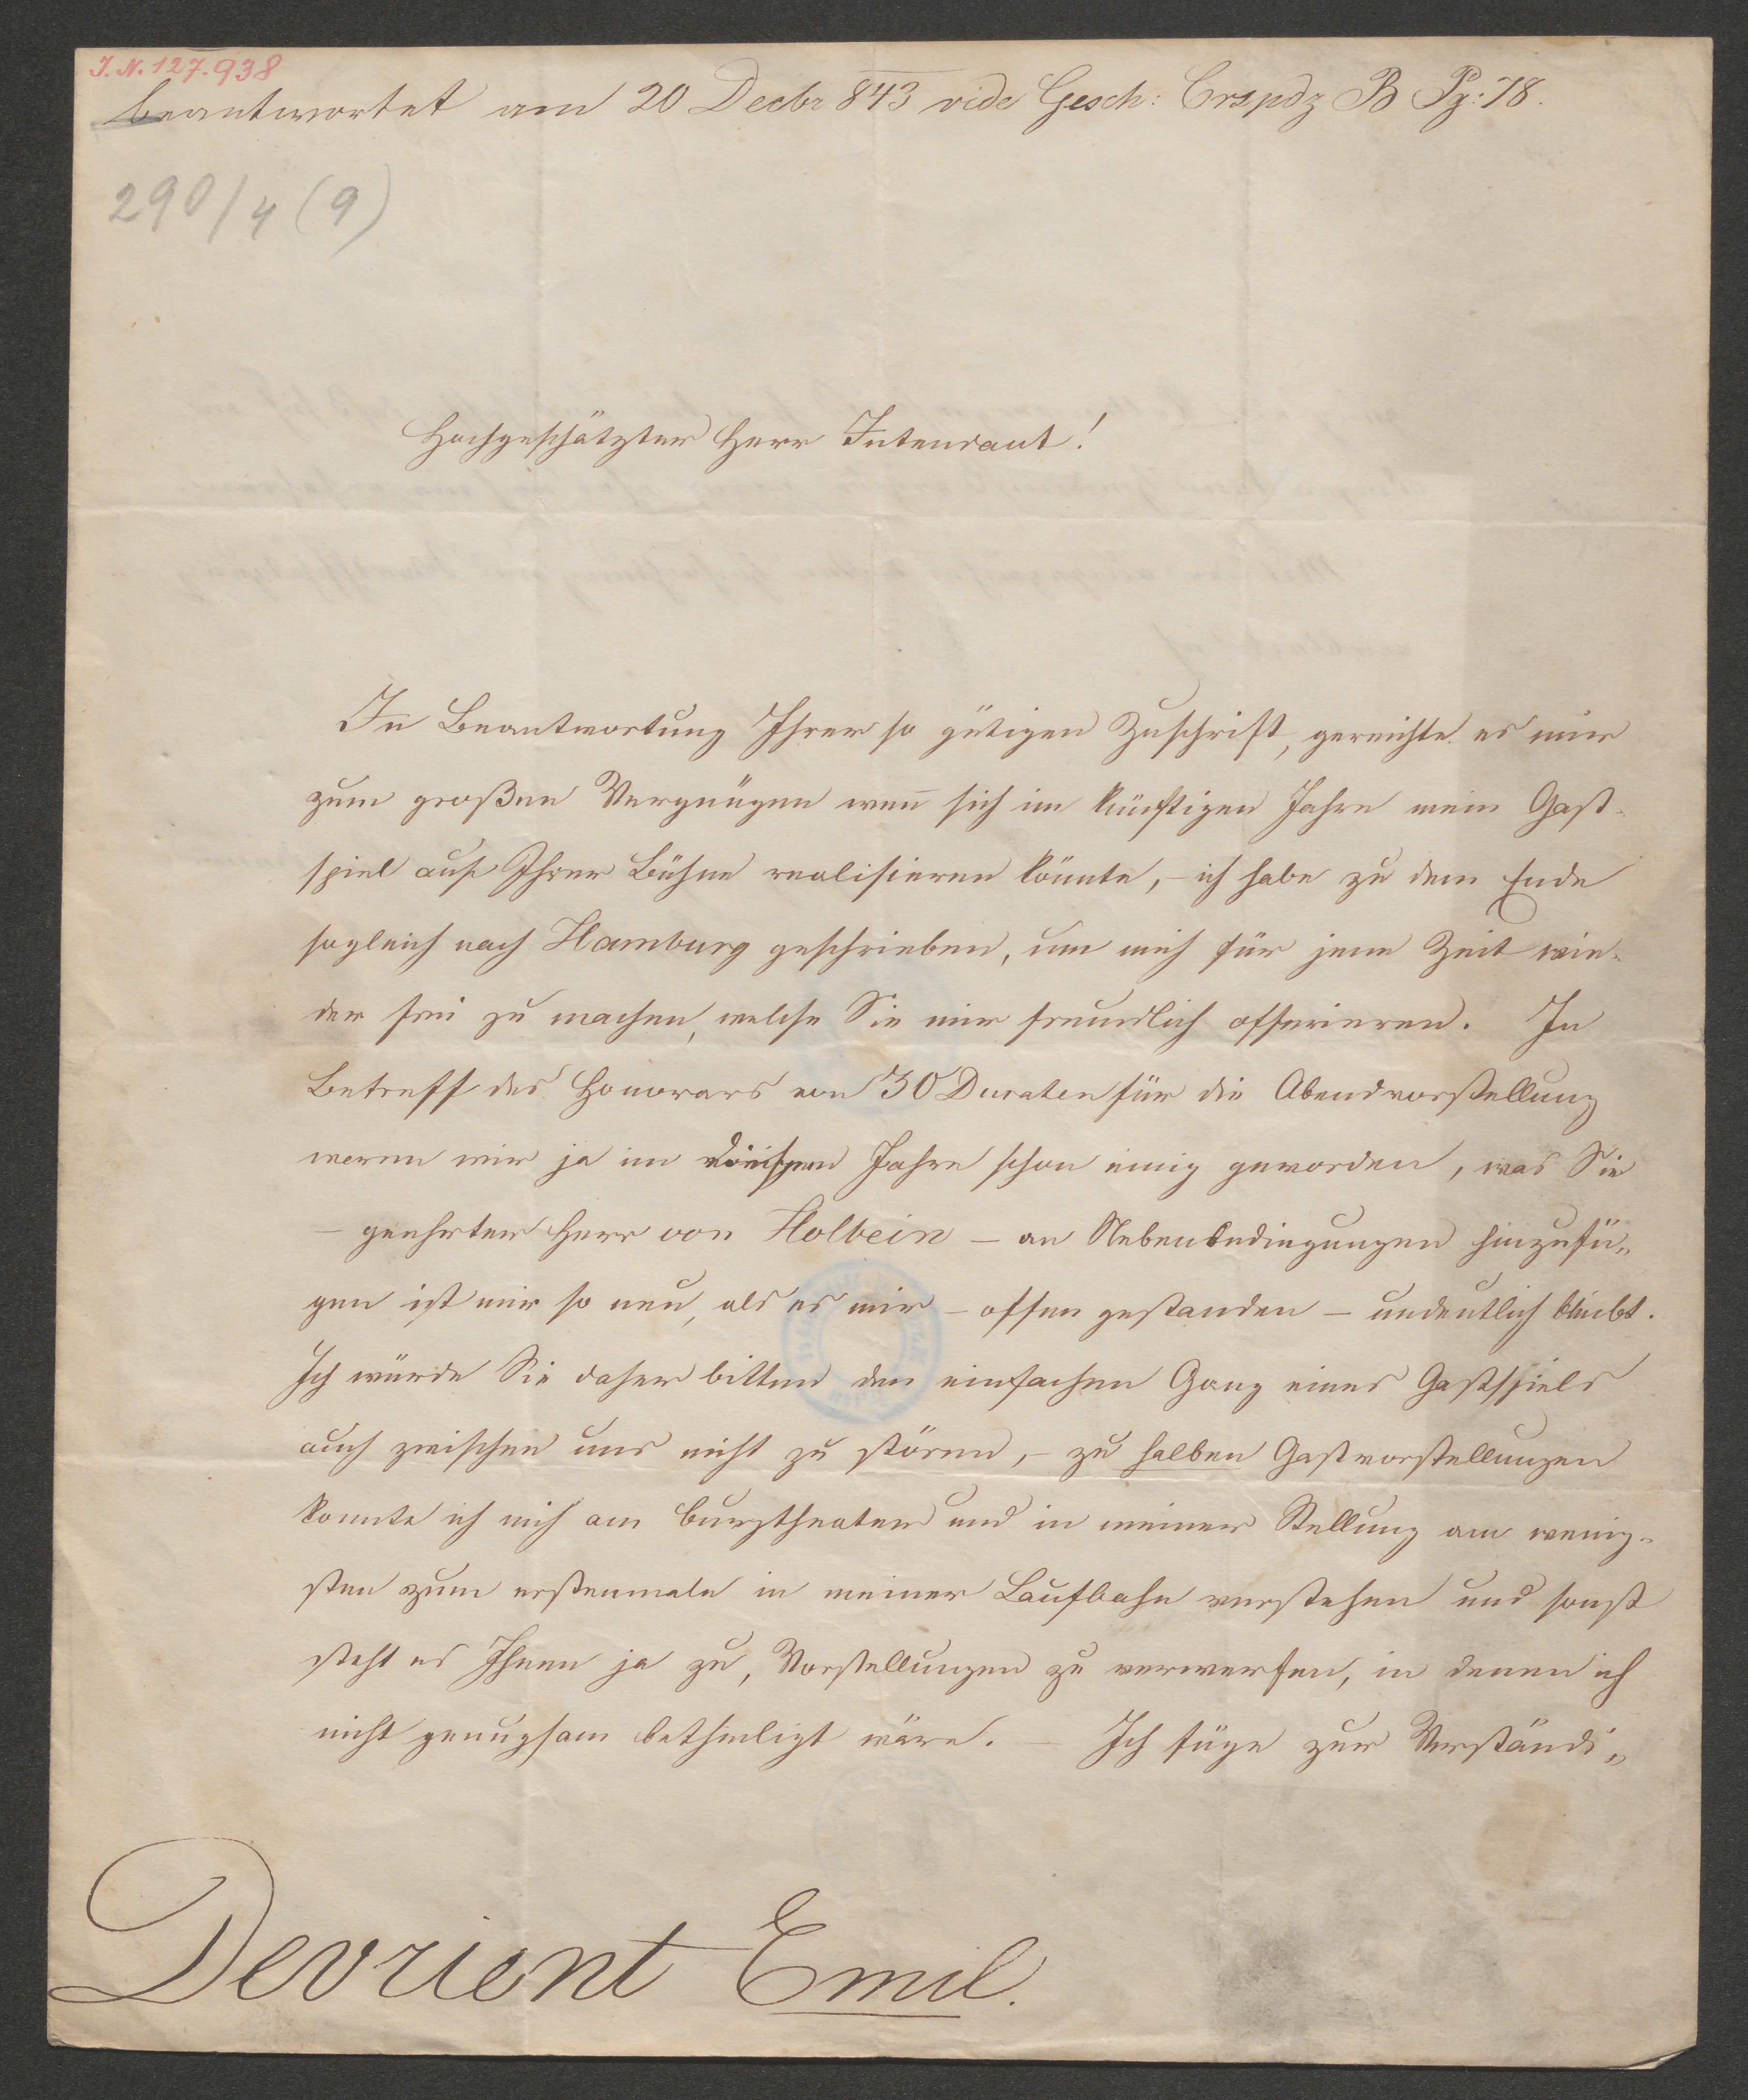 I.N. 127.938
beantwortet am 20 Decbr 843 vide Gesch: Crspdz B Pg: 78.
290/4 (9)
Hochgeschätzter Herr Intendant!
In Beantwortung Ihrer so gütigen Zuschrift, gereichte es mir
zum großen Vergnügen wen̄ sich im künftigen Jahre mein Gast-
spiel auf Ihrer Bühne realisieren könnte, – ich habe zu dem Ende
sogleich nach Hamburg geschrieben, um mich für jene Zeit wie-
der frei zu machen, welche Sie mir freundlich offerieren. In
Betreff des Honorars von 30 Ducaten für die Abendvorstellung
waren wir ja im Jahre schon einig geworden, was Sie
– geehrter Herr von Holbein – an Nebenbedingungen hinzufü-
gen ist mir so neu, als es mir – offen gestanden – undeutlich bleibt.
Ich würde Sie daher bitten den einfachen Gang eines Gastspiels
auch zwischen uns nicht zu stören, – zu halben Gastvorstellungen
konnte ich mich am Burgtheater und in meiner Stellung am wenig-
sten zum erstenmale in meiner Laufbahn verstehen und sonst
steht es Ihnen ja zu, Vorstellungen zu verwerfen, in denen ich
nicht genugsam betheiligt wäre. – Ich füge zur Verständi-
Devrient Emil.